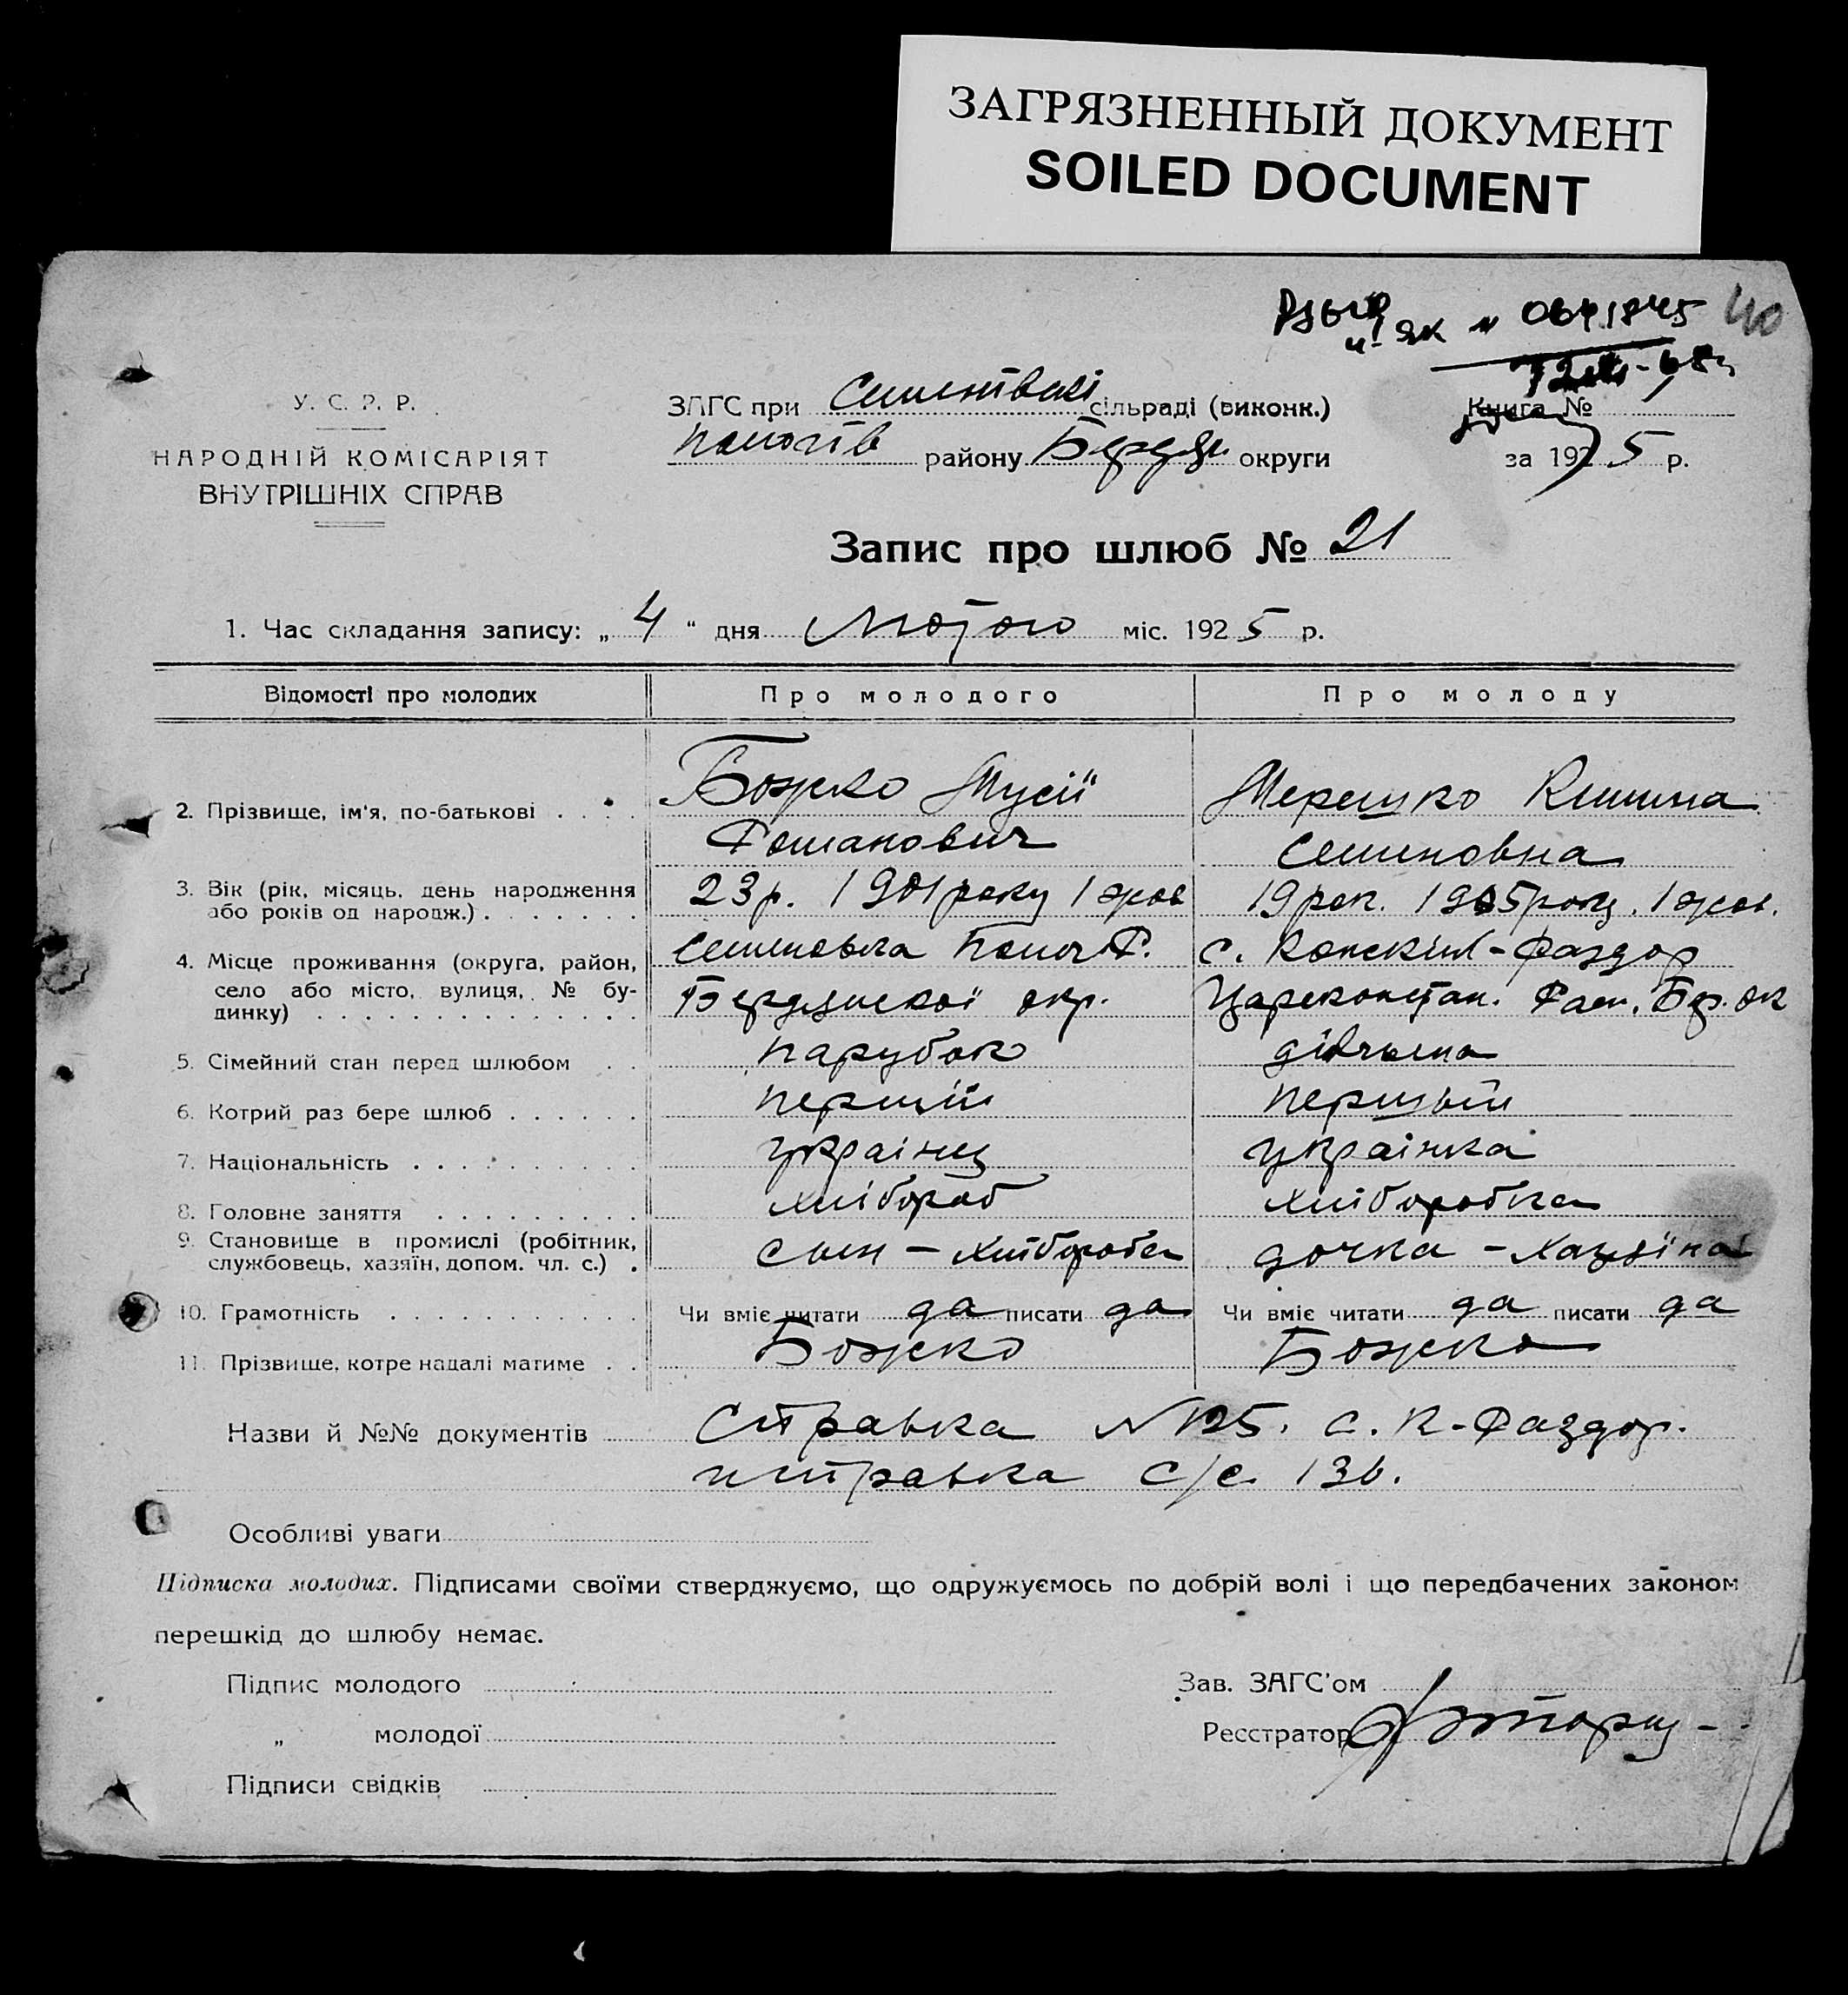 ЗАГРЯЗНЕННЫЙ ДОКУМЕНТ
SOILED DOCUMENT
40
У. С. Р. Р.
НАРОДНІЙ КОМІСАРІЯТ
ВНУТРІШНІХ СПРАВ
ЗАГС при сільраді (виконк.)
району округи
Книга №
за 1925 р.
Запис про шлюб № 21
1. Час складання запису: „ 4 “ дня Лютого міс. 1925 р.
Відомості про молодих Про молодого Про молоду
2. Прізвище, ім'я, по-батькові . . . . Божко Мусій Мерешко
Романович Семеновна
3. Вік (рік, місяць, день народження 23 р. 1901 року 1 жов 19 рок. 1905 року. 1 жов.
або років од народж.) . . . . . . .
4. Місце проживання (округа, район, Семеновка с. Конскіх-Раздор
село або місто, вулиця, № бу- Бердянскої окр. Цареконстан. Раен. Бер. ок
динку) . . . . . . . . . . . . . .
5. Сімейний стан перед шлюбом . . парубок дівчына
6. Котрий раз бере шлюб . . . . . . перший першый
7. Національність . . . . . . . . . . українец українка
8. Головне заняття . . . . . . . . . хлібороб хліборобка
9. Становище в промислі (робітник, сын – хлібороба дочка – хазяїна
службовець, хазяїн, допом. чл. с.) .
10. Грамотність . . . . . . . . . . . Чи вміє читати да писати да Чи вміє читати да писати да
11. Прізвище, котре надалі матиме . . Божко Божко
Назви й №№ документів Справка N 125. с. К-Раздор.
справка с/с. 136.
Особливі уваги
Підписка молодих. Підписами своїми стверджуємо, що одружуємось по добрій волі і що передбачених законом
перешкід до шлюбу немає.
Підпис молодого
„ молодої
Підписи свідків
Зав. ЗАГС'ом
Реєстратор